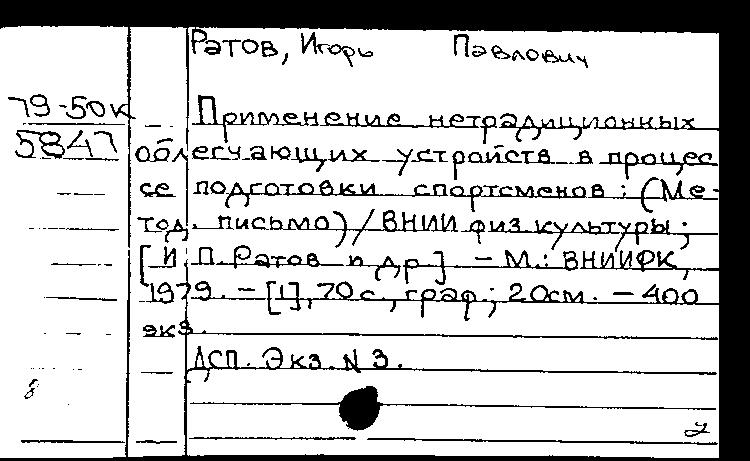 Ратов, Игорь Павлович
79-50к
5847
Применение нетрадиционных
облегчающих устройств в процес
се подготовки спортсменов: (Ме-
тод. письмо) / ВНИИ физ культуры;
[И. П. Ратов и др] - М.: ВНИИФК,
1979. - [1], 70 с., граф.; 20см. - 400
экз.
ДСП. Экз. N 3.
8
2